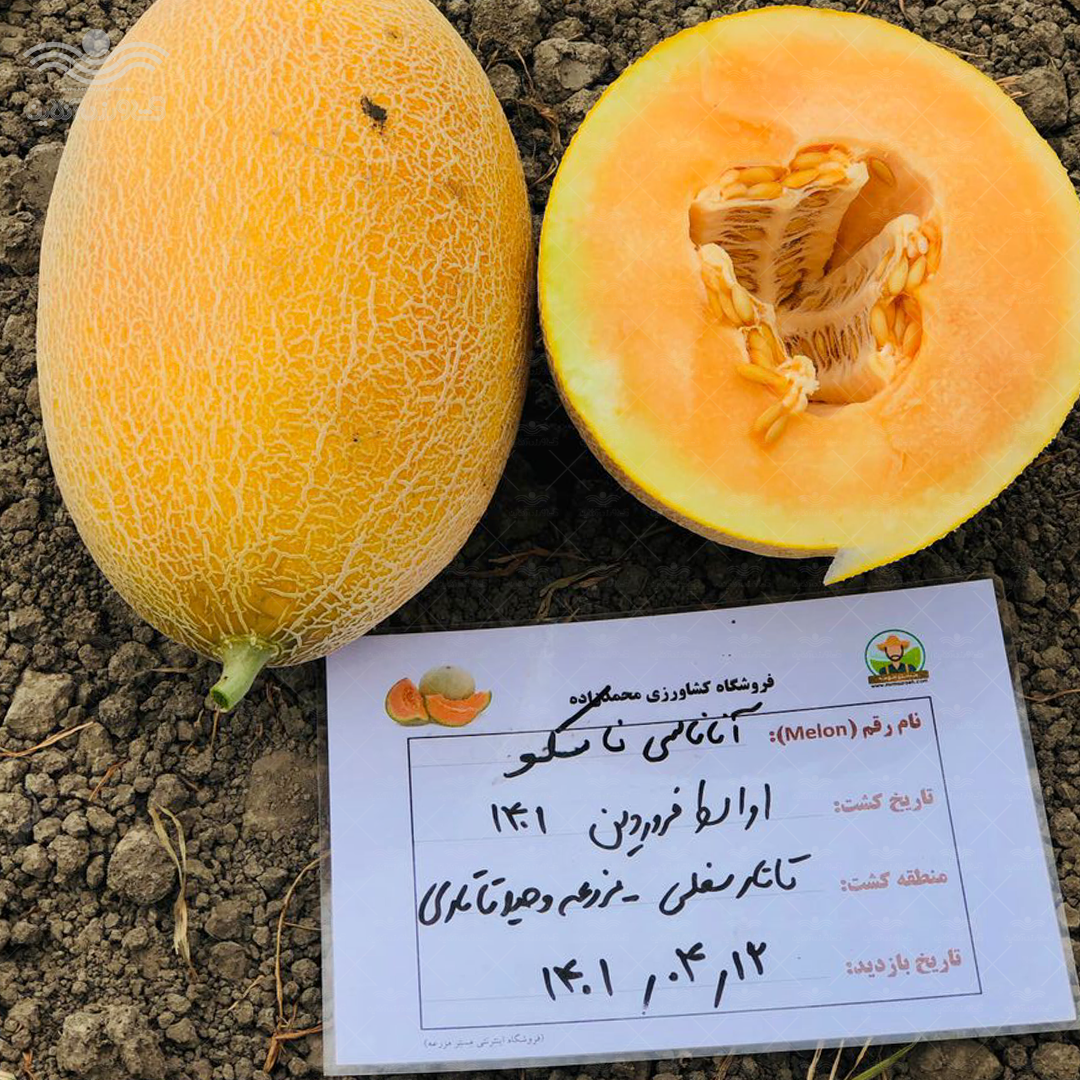 فروشگاه کشاورزی محمدزاده
نام رقم (Melon): آناناسی ناسکو
تاریخ کشت: اواسط فروردین ۱۴۰۱
منطقه کشت: تاتار سفلی - مزرعه وحید تاتاری
تاریخ بازدید: ۱۴۰۱/۰۴/۱۲
(فروشگاه اینترنتی مستر مزرعه)